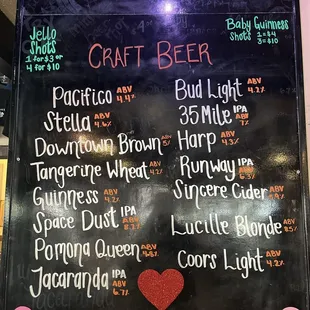 Jello
Shots
1 for $3 or
4 for $10
Baby Guinness
Shots 1=$4
3=$10
CRAFT BEER
Pacifico ABV 4.4%
Stella ABV 4.6%
Downtown Brown ABV 5%
Tangerine Wheat ABV 4.2%
Guinness ABV 4.2%
Space Dust IPA ABV 8.2%
Pomona Queen ABV
Jacaranda IPA ABV 6.7%
Bud Light ABV 4.2%
35 Mile IPA ABV 7%
Harp ABV 4.3%
Runway IPA ABV 6.3%
Sincere Cider ABV
Lucille Blonde ABV
Coors Light ABV 4.2%